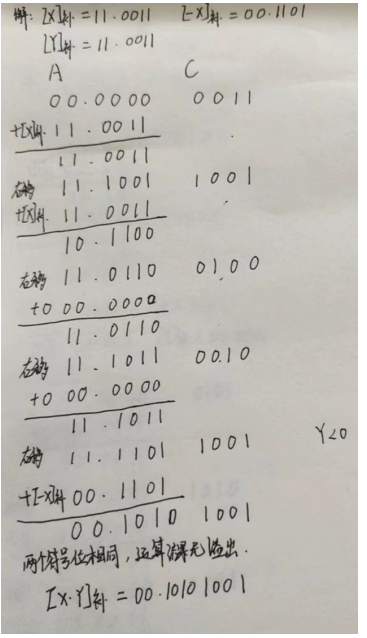 解: [X]补 = 11.0011 [-X]补 = 00.1101
[Y]补 = 11.0011
A C
00.0000 0011
+[X]补 11.0011
11.0011
右移 11.1001 1001
+[X]补 11.0011
10.1100
右移 11.0110 0100
+0 00.0000
11.0110
右移 11.1011 0010
+0 00.0000
11.1011
右移 11.1101 1001 Y<0
+[-X]补 00.1101
00.1010 1001
两个符号位相同，运算结果无溢出.
[X·Y]补 = 00.10101001